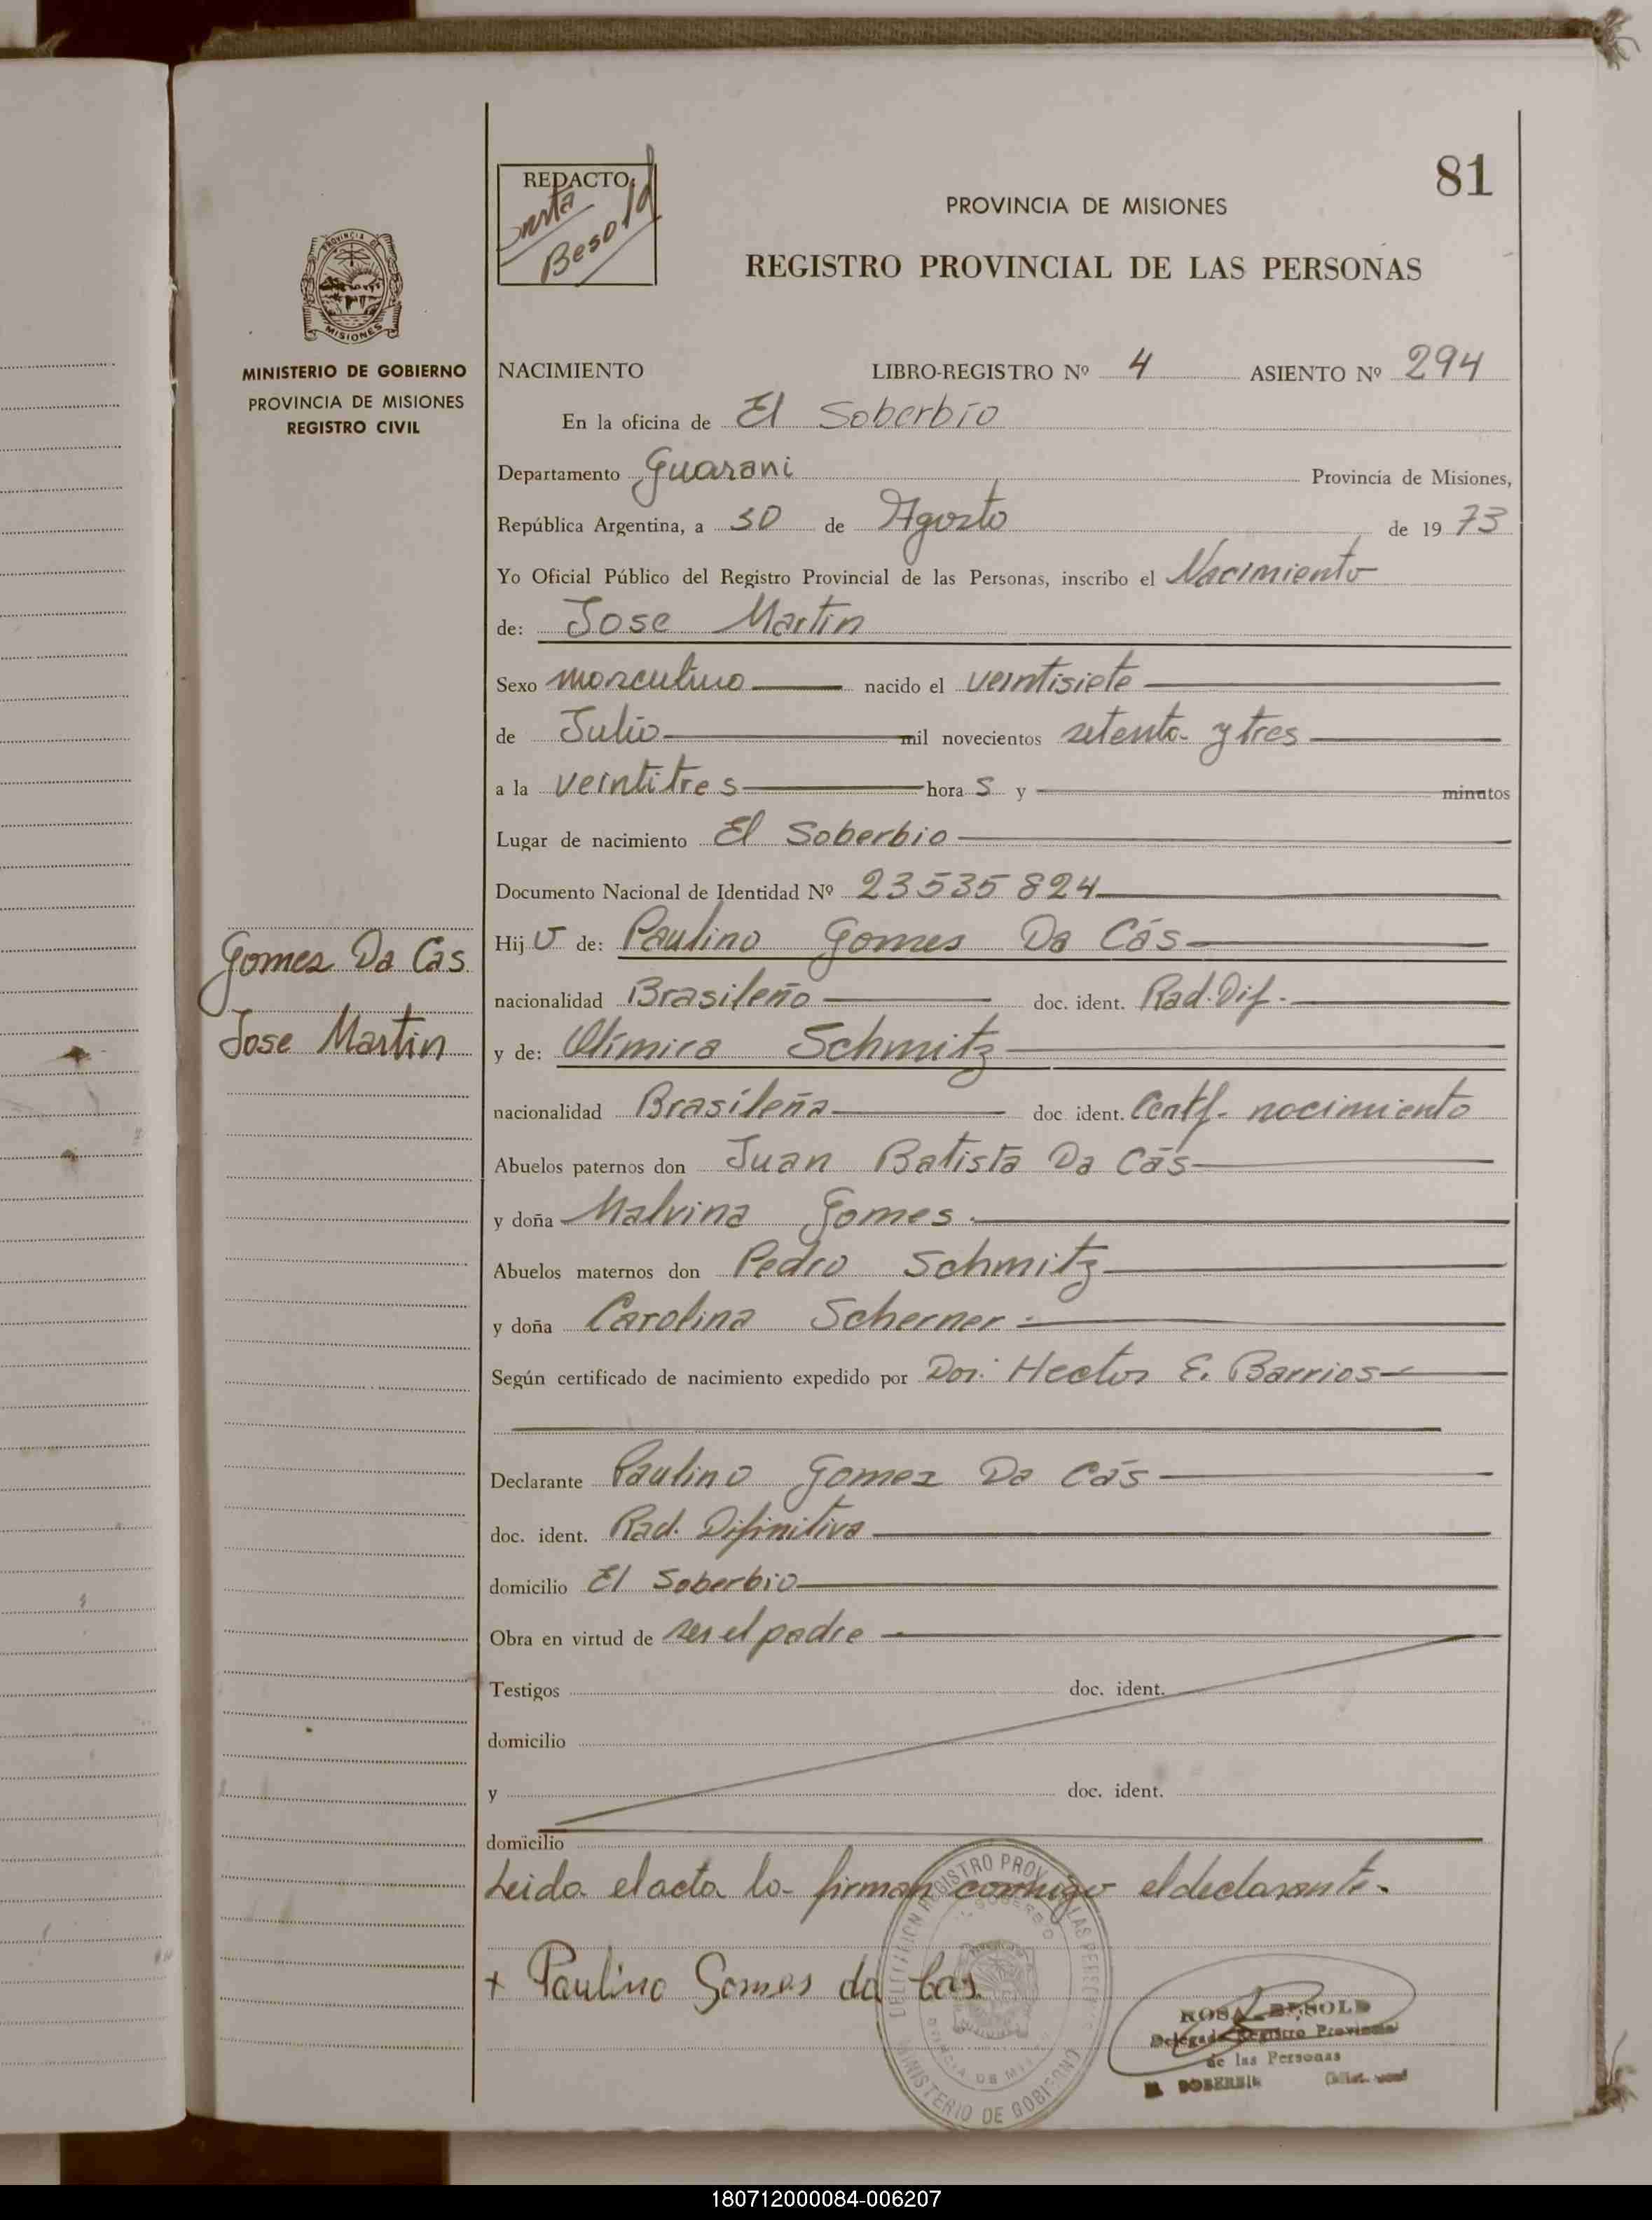 81
REDACTO:
Besold
PROVINCIA DE MISIONES
REGISTRO PROVINCIAL DE LAS PERSONAS
MISIONES
MINISTERIO DE GOBIERNO
PROVINCIA DE MISIONES
REGISTRO CIVIL
NACIMIENTO LIBRO-REGISTRO Nº 4 ASIENTO Nº 294
En la oficina de El Soberbio
Departamento Guarani Provincia de Misiones,
República Argentina, a 30 de Agosto de 19 73
Yo Oficial Público del Registro Provincial de las Personas, inscribo el Nacimiento
de: Jose Martin
Sexo masculino nacido el veintisiete
de Julio mil novecientos setenta y tres
a la veintitres hora s y minutos
Lugar de nacimiento El Soberbio
Documento Nacional de Identidad Nº 23535824
Gomez Da Cas
Jose Martin
Hij o de: Paulino Gomes Da Cás
nacionalidad Brasileño doc. ident. Rad. Dif.
y de: Schmitz
nacionalidad Brasileña doc. ident. Certf. nacimiento
Abuelos paternos don Juan Batista Da Cás
y doña Malvina Gomes.
Abuelos maternos don Pedro Schmitz
y doña Carolina Scherner
Según certificado de nacimiento expedido por Hector E. Barrios
Declarante Paulino Gomez Da Cás
doc. ident. Rad. Difinitiva
domicilio El Soberbio
Obra en virtud de ser el padre
Testigos doc. ident.
domicilio
y doc. ident.
domicilio
Leida el acta la firman conmigo el declarante.
+ Paulino Gomes da Cas.
MINISTERIO DE GOBIERNO
ROSA BESOLD
Delegada Registro Provincial
de las Personas
EL SOBERBIO
180712000084-006207